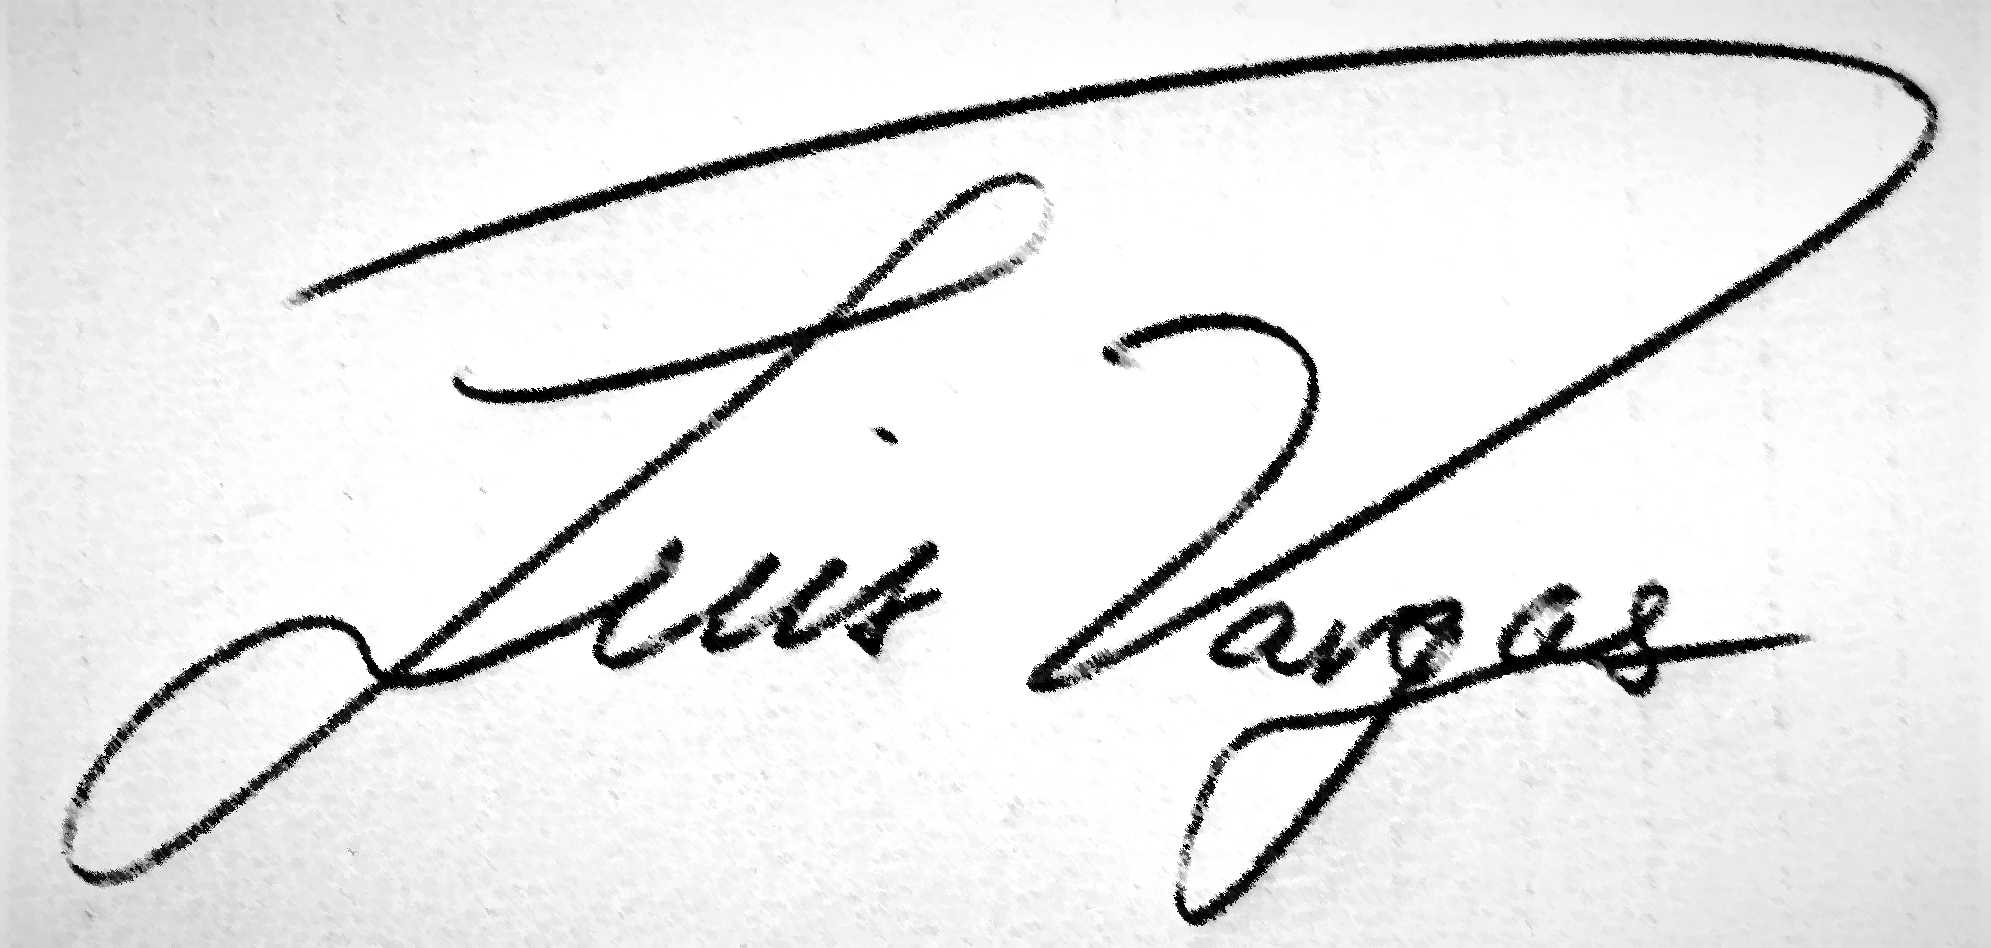 Luis Vargas